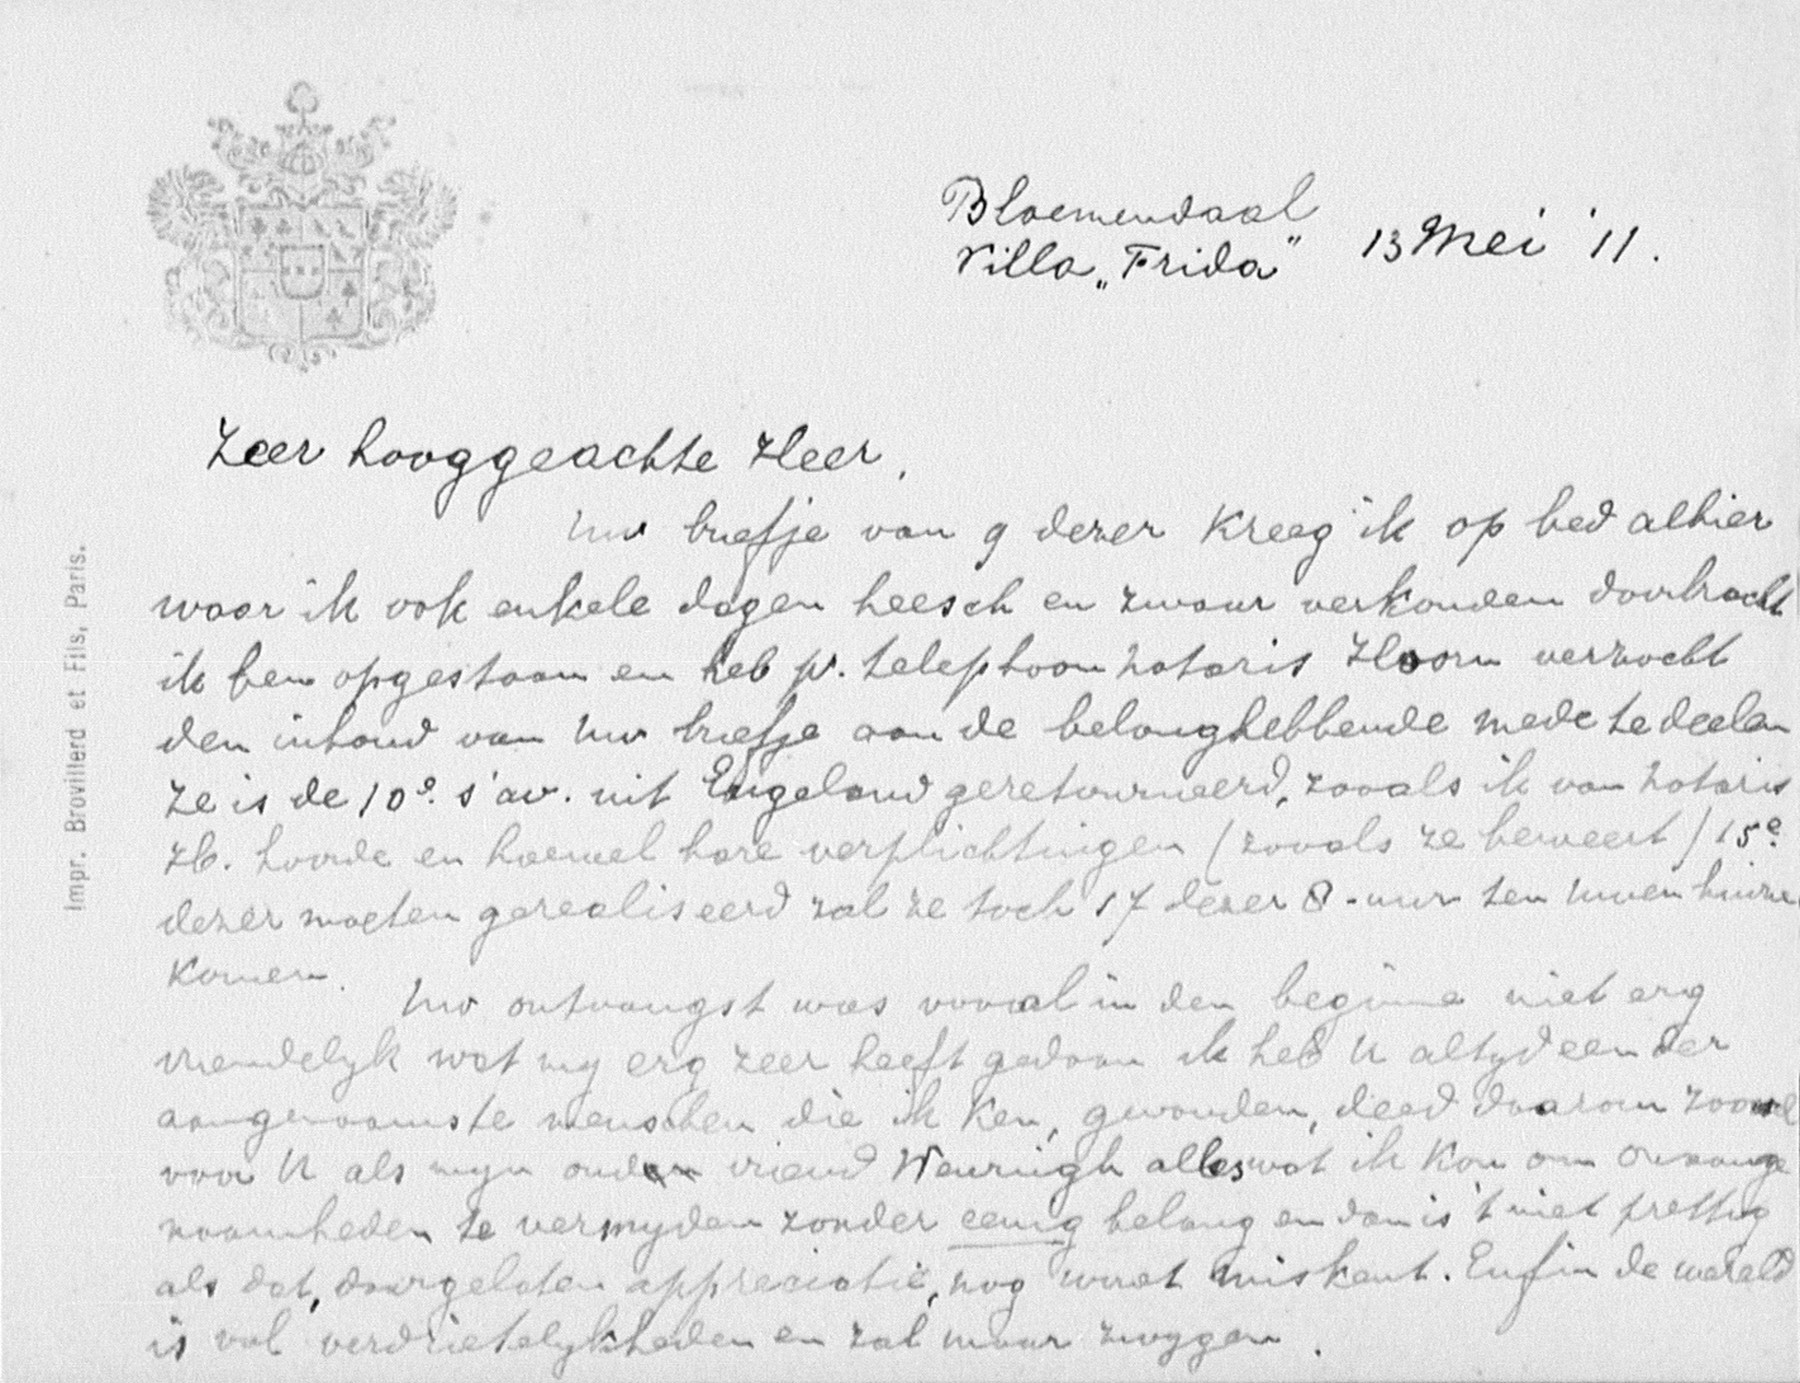 Bloemendaal
Villa „Frida" 13 Mei '11.
Zeer hooggeachte Heer,
Uw briefje van 9 dezer kreeg ik op bed alhier
waar ik ook enkele dagen heesch en zwaar verkouden doorbracht
ik ben opgestaan en heb p. telephoon notaris Hoorn verzocht
den inhoud van Uw briefje aan de belanghebbende mede te deelen
ze is de 10e. s'av. uit Engeland geretourneerd, zooals ik van notaris
H. hoorde en hoewel hare verplichtingen (zooals ze beweert) 15e.
dezer moeten gerealiseerd zal ze toch 17 dezer 8-uur ten Uwen huize
komen.
Uw ontvangst was vooral in den beginne niet erg
vriendelyk wat my erg zeer heeft gedaan ik heb U altyd een der
aangenaamste menschen die ik ken, gevonden, deed daarom zoowel
voor U als myn ouden vriend alles wat ik kon om onaange
naamheden te vermyden zonder eenig belang en dan is 't niet prettig
als dat, daargelaten appreciatie, nog wordt miskent. Enfin de wereld
is vol verdrietelykheden en zal maar zwygen.
Impr. Brovillerd et Fils, Paris.